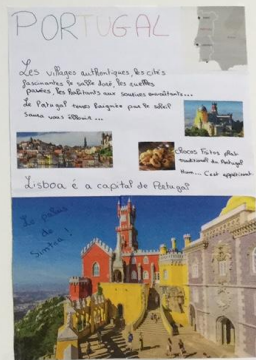 PORTUGAL
Les villages authentiques, les cités
fascinantes le sable doré, les ruelles
pavées, les habitants aux sourires
Le Portugal vous baigne par le soleil
saura vous éblouir...
Chocos Fritos plat
traditionnel du Portugal
Hum... C'est appétissant
Lisboa é a capital de Portugal
Le palais
de
Sintra!